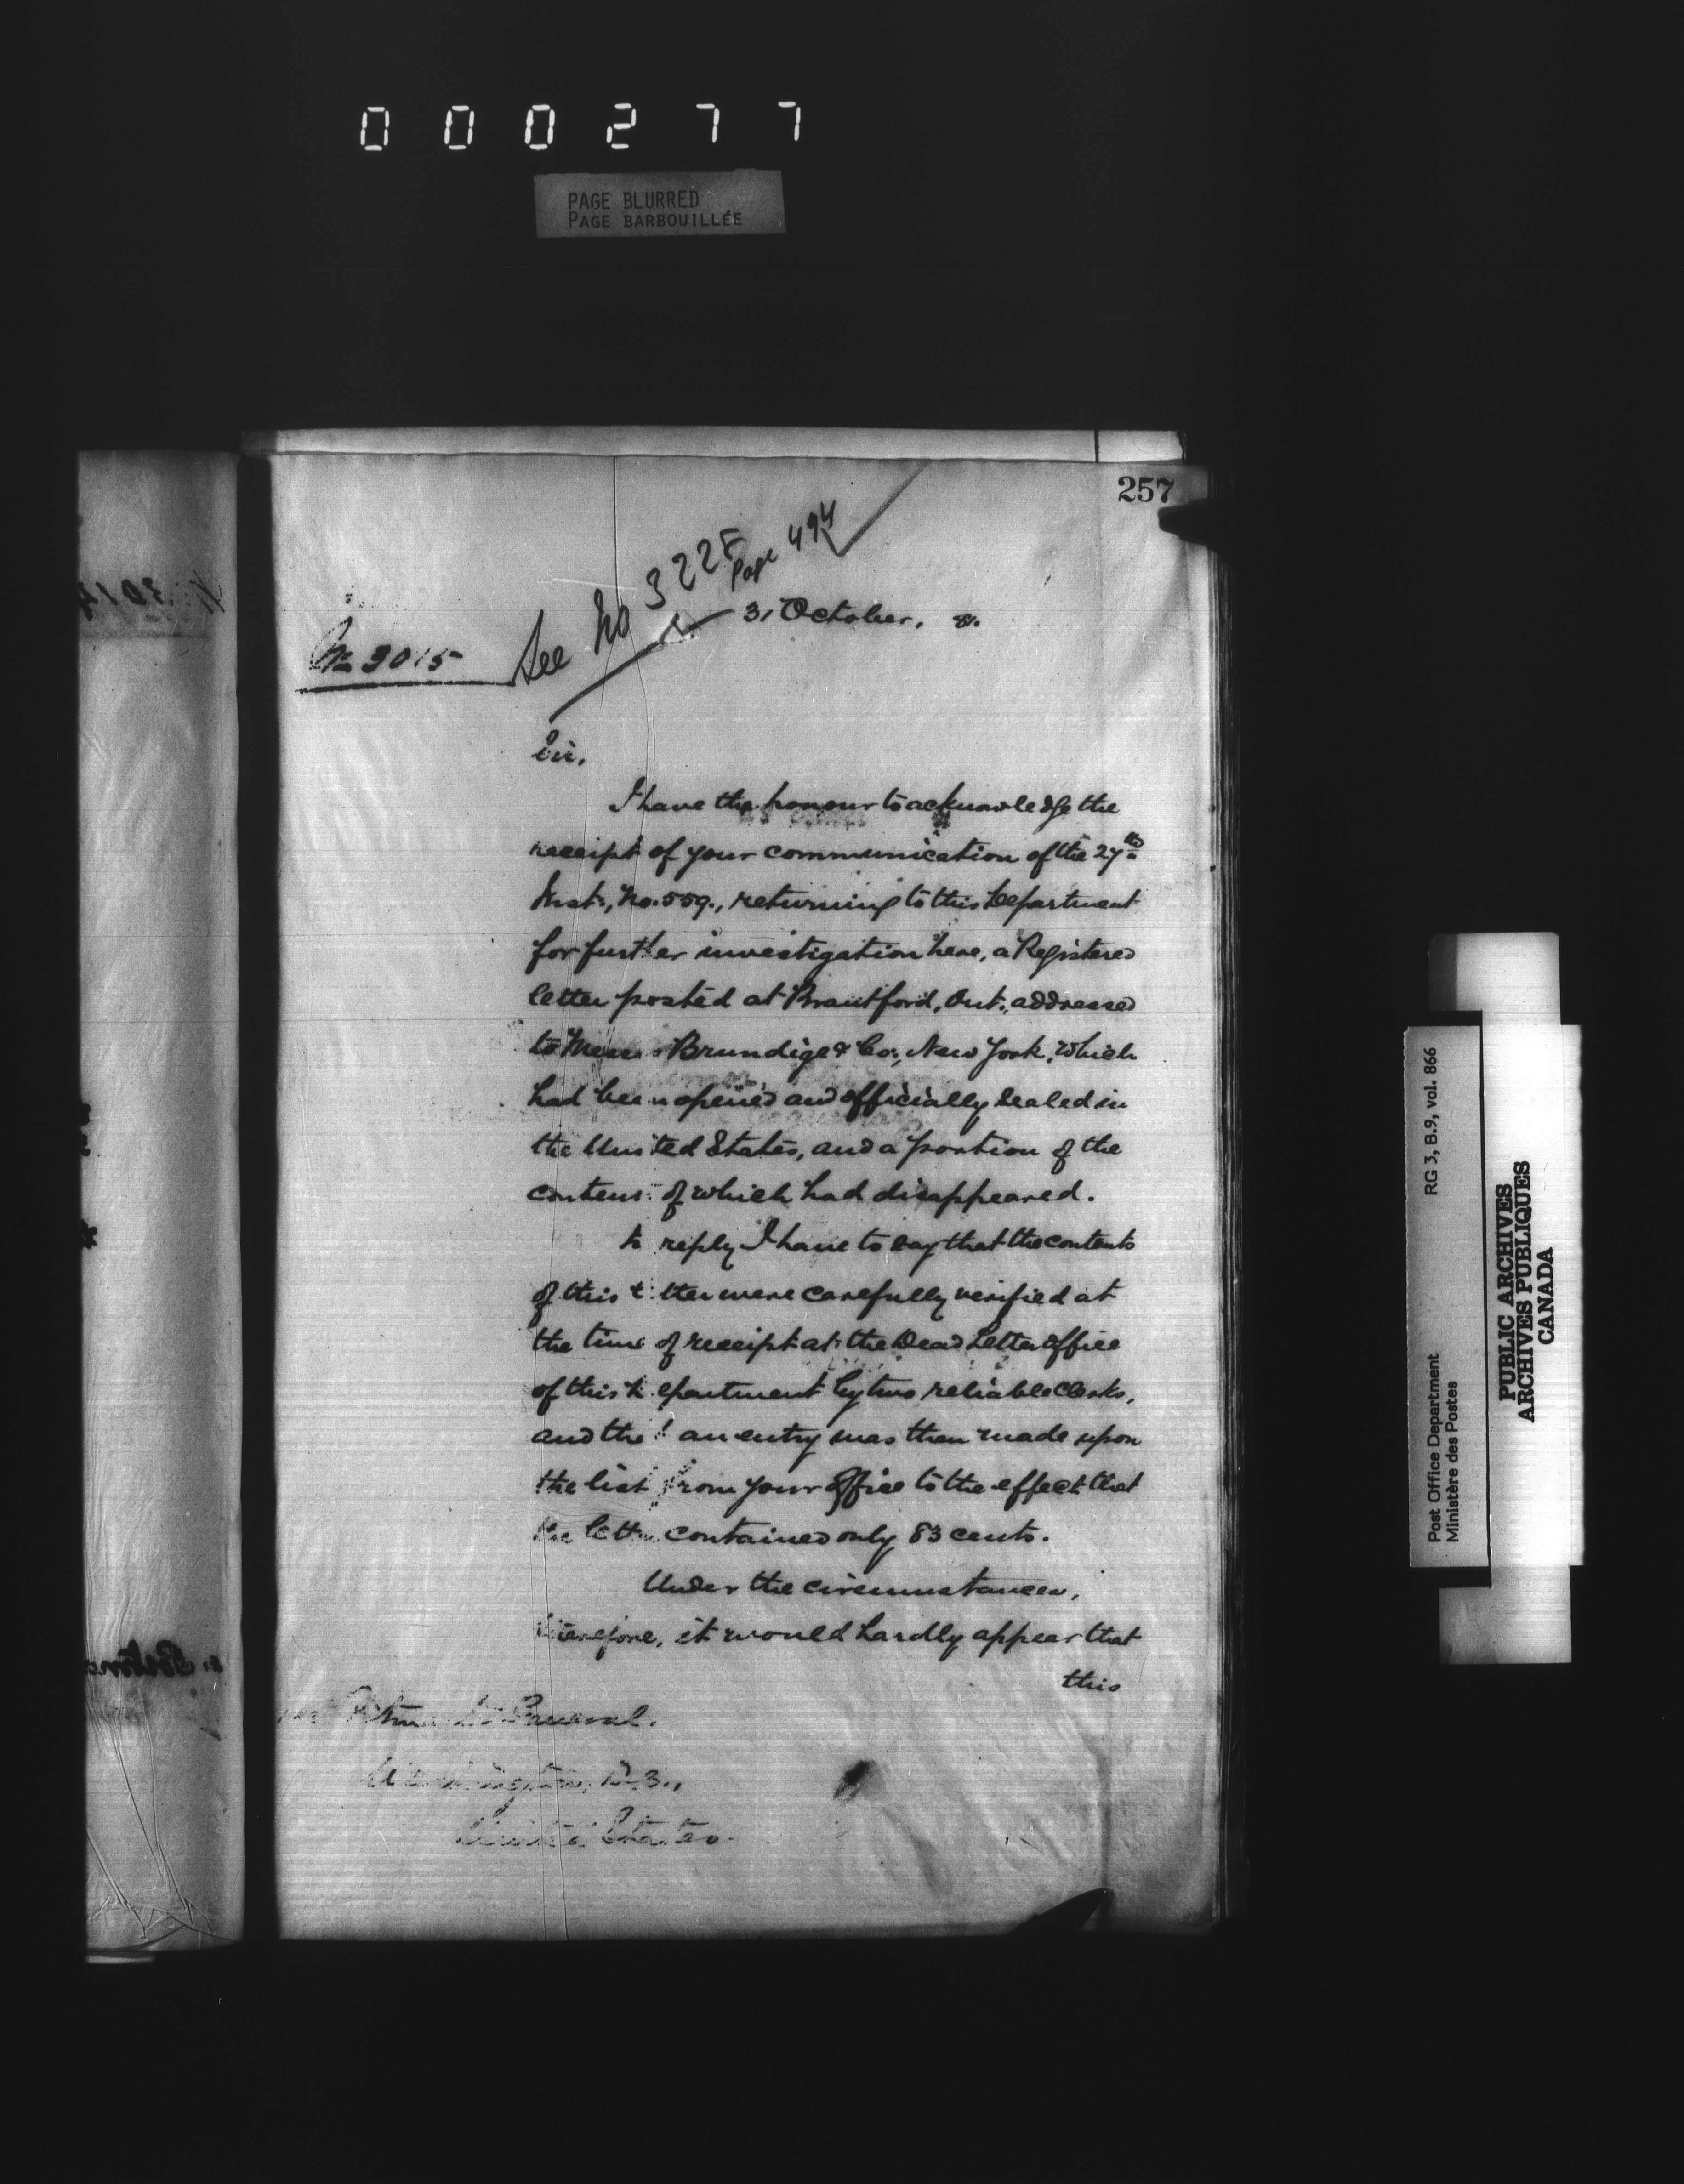 000277
PAGE BLURRED
PAGE BARBOUILLÉE
257
See No 3225 Page 494
31 October, 81.
No 3015
Sir,
I have the honour to acknowledge the
receipt of your communication of the 27th
Inst., No. 559., returning to this Department
for further investigation here, a Registered
letter posted at Brantford, Ont., addressed
to Messrs Brundige & Co., New York, which
had been opened and officially sealed in
the United States, and a portion of the
contents of which had disappeared.
In reply I have to say that the contents
of this letter were carefully verified at
the time of receipt at the Dead Letter Office
of this Department by two reliable Clerks,
and that an entry was then made upon
the list from your Office to the effect that
the letter contained only 83 cents.
Under the circumstances,
therefore, it would hardly appear that
this
Postmaster General.
Washington, D.C.,
United States.
RG 3, B.9, vol. 866
Post Office Department
Ministère des Postes
PUBLIC ARCHIVES
ARCHIVES PUBLIQUES
CANADA